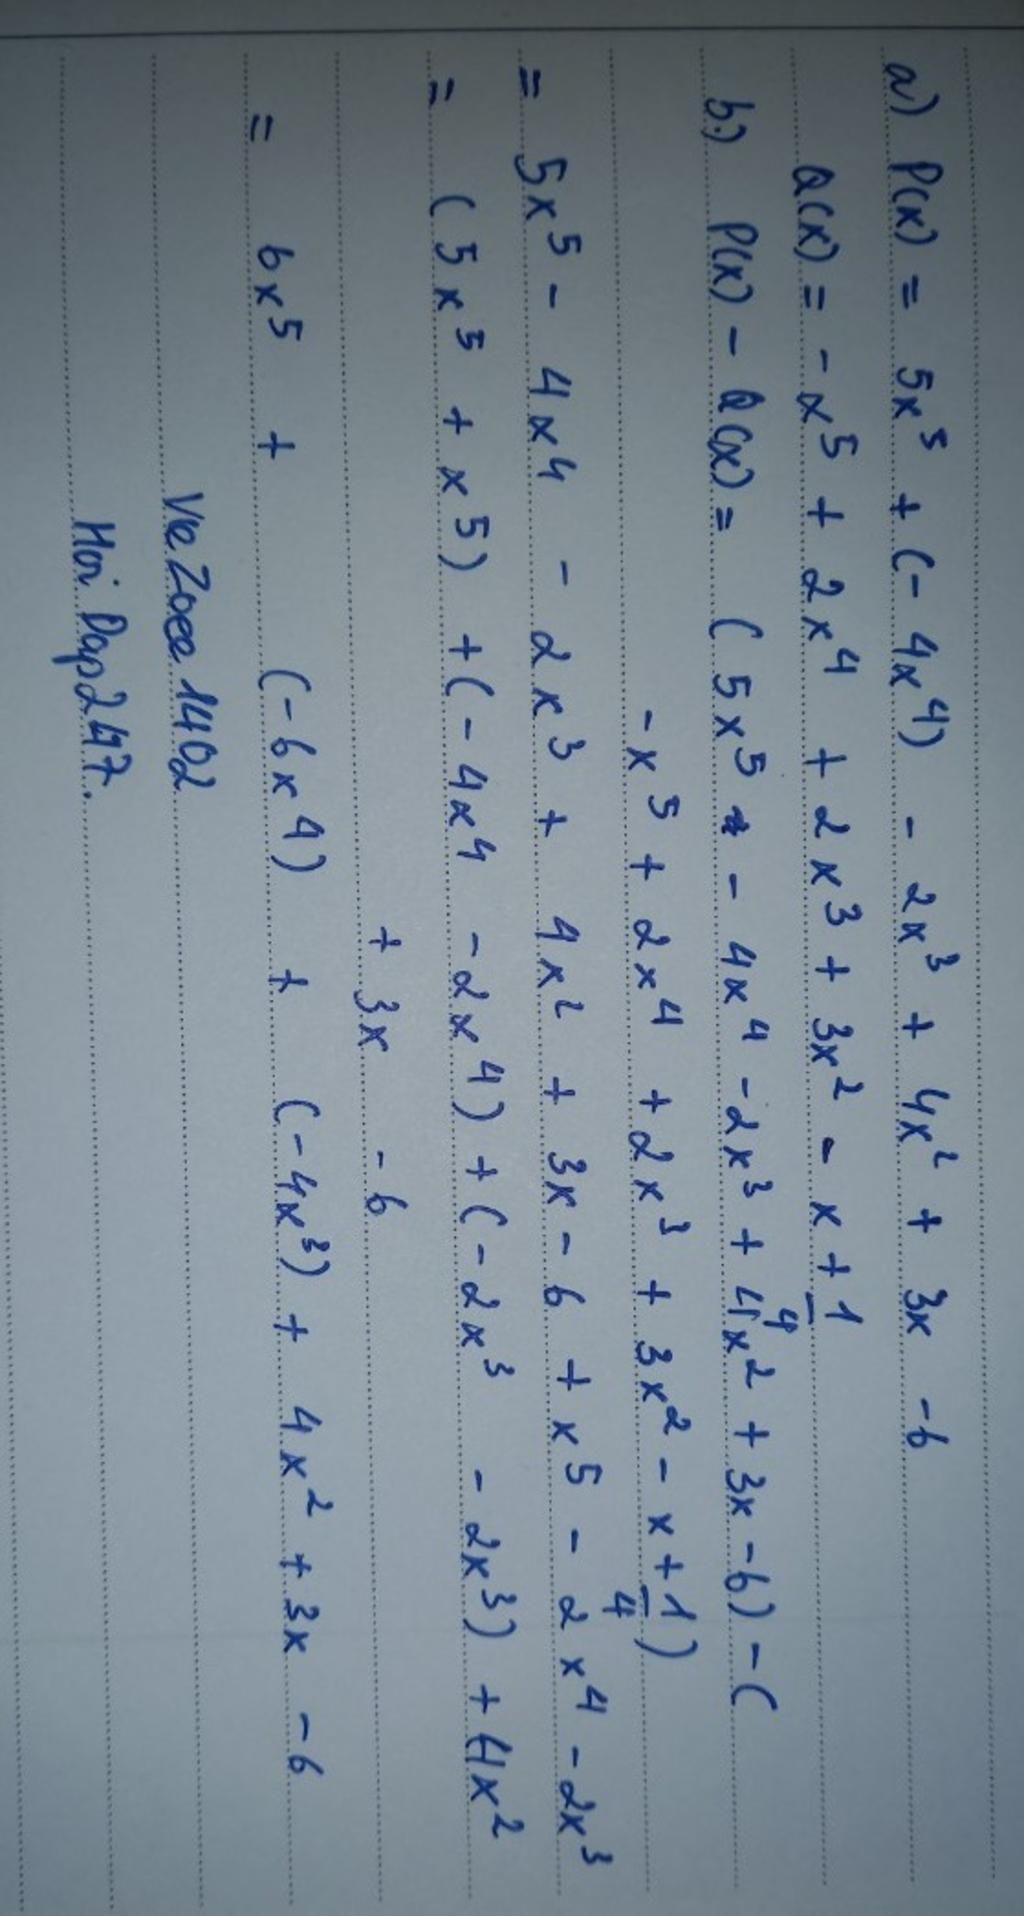 a) P(x) = 5x⁵ + (- 4x⁴) - 2x³ + 4x² + 3x - 6
Q(x) = - x⁵ + 2x⁴ + 2x³ + 3x² - x + 1/4
b) P(x) - Q(x) = ( 5x⁵ - 4x⁴ - 2x³ + 4x² + 3x - 6) - (
- x⁵ + 2x⁴ + 2x³ + 3x² - x + 1/4)
= 5x⁵ - 4x⁴ - 2x³ + 4x² + 3x - 6 + x⁵ - 2x⁴ - 2x³
= ( 5x⁵ + x⁵) + (- 4x⁴ - 2x⁴) + (- 2x³ - 2x³) + 4x²
+ 3x - 6
= 6x⁵ + (- 6x⁴) + (- 4x³) + 4x² + 3x - 6
1402
Hoi Dap 247.